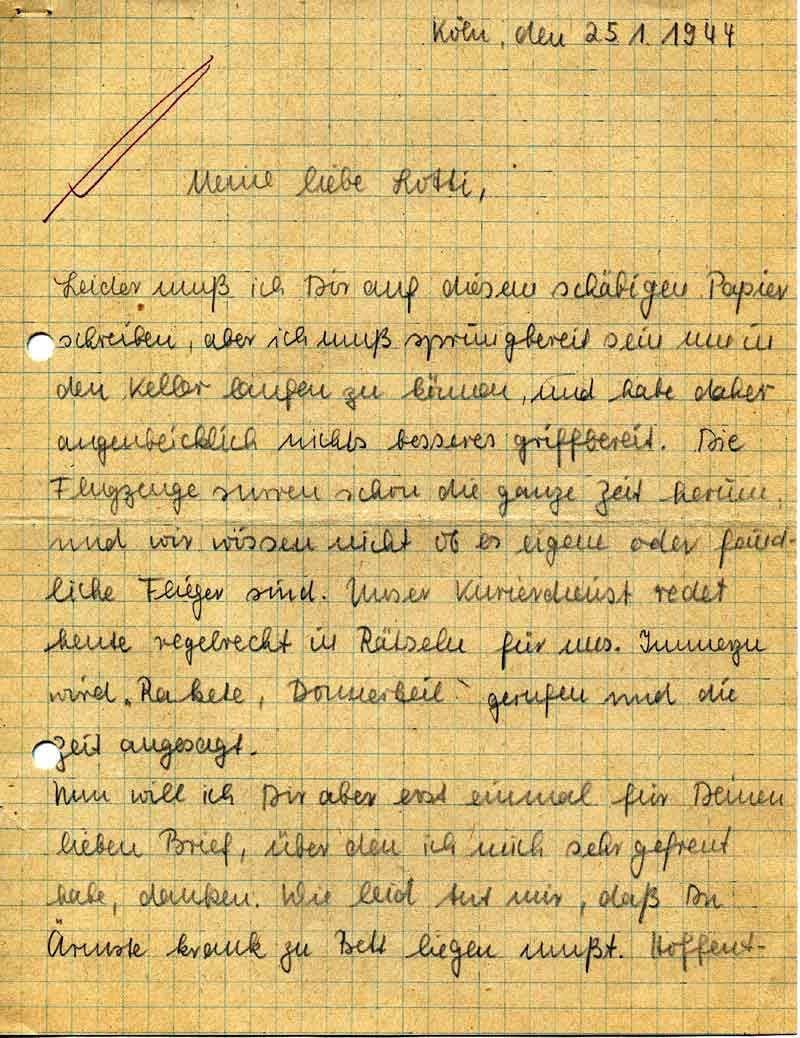 Köln, den 25.1.1944
Meine liebe Lotti,
Leider muß ich Dir auf diesem schäbigen Papier
schreiben, aber ich muß sprungbereit sein um in
den Keller laufen zu können, und habe daher
augenbicklich nichts besseres griffbereit. Die
Flugzeuge surren schon die ganze Zeit herum,
und wir wissen nicht ob es eigene oder feind-
liche Flieger sind. Unser Kurierdienst redet
heute regelrecht in Rätseln für uns. Immerzu
wird „Rakete, Donnerkeil“ gerufen und die
Zeit angesagt.
Nun will ich Dir aber erst einmal für Deinen
lieben Brief, über den ich mich sehr gefreut
habe, danken. Wie leid tut mir, daß Du
Ärmste krank zu Bett liegen mußt. Hoffent-